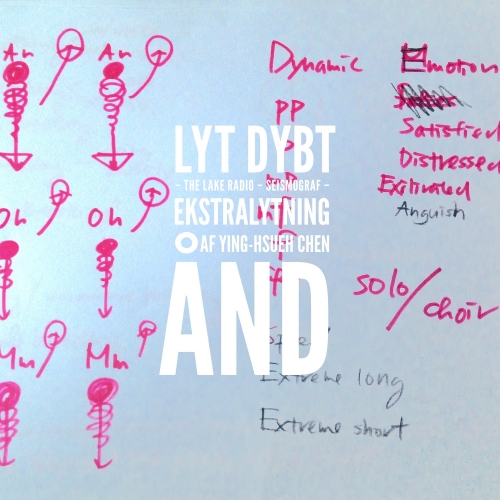 An An
Oh Oh
Mm Mm
Dynamic
pp
Emotion
Satisfied
Distressed
Anguish
solo/choir
Extreme long
Extreme short
LYT DYBT
– THE LAKE RADIO – SEISMOGRAF –
EKSTRALYTNING
AF YING-HSUEH CHEN
AND